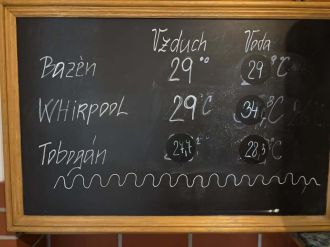 Vzduch Voda
Bazén 29°° 29°C
WHIRPOOL 29°C 34°C
Tobogán 27,7° 28,3°C